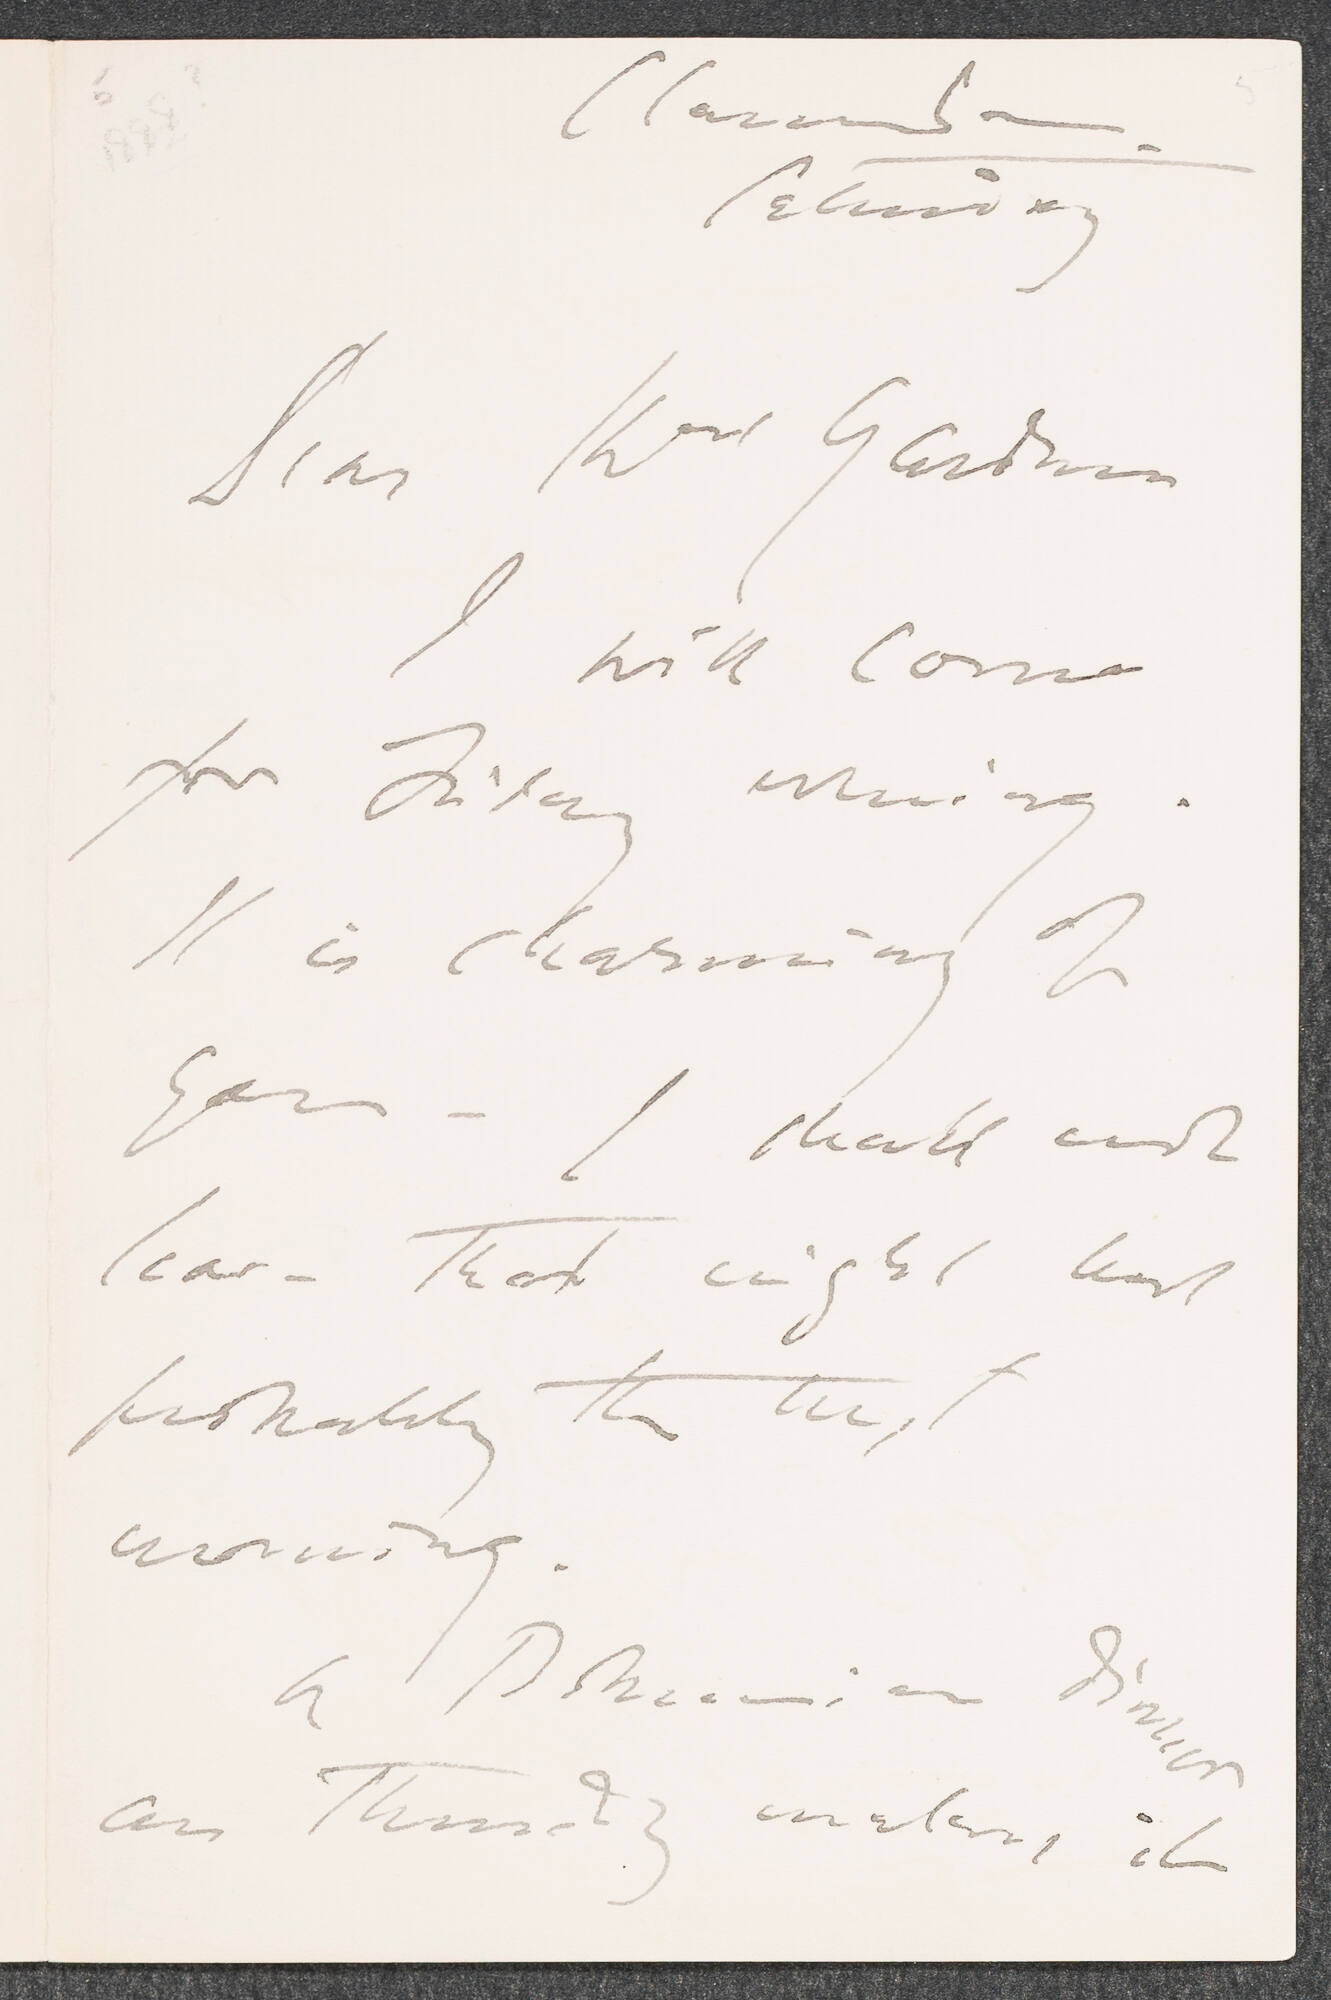 Clarendon.
Saturday
Dear Mrs Gardner
I will come
for Friday evening.
It is charming of
you - I shall not
leave that night but
probably the next
morning.
A Bohemian dinner
on Thursday makes it